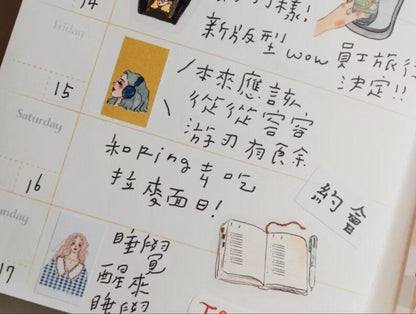 14
樣!
新版型 wow
員工旅
決定!!
Friday
15
本來應該
從從容容
游刃有餘
Saturday
16
和Ring去吃
拉麵日!
約會
unday
17
睡覺
醒來
睡覺